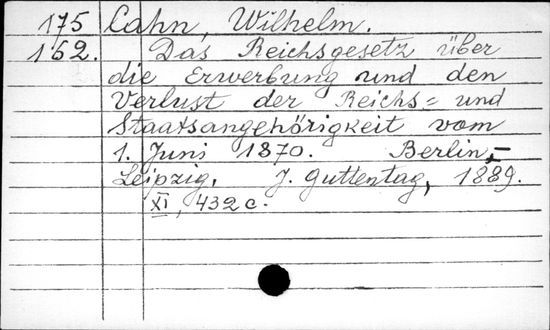 175 Cahn, Wilhelm.
162. Das Reichsgesetz über
die Erwerbung und den
Verlust der Reichs= und
Staatsangehörigkeit vom
1. Juni 1870. Berlin,–
Leipzig, J. Guttentag, 1889.
XI, 432 c.